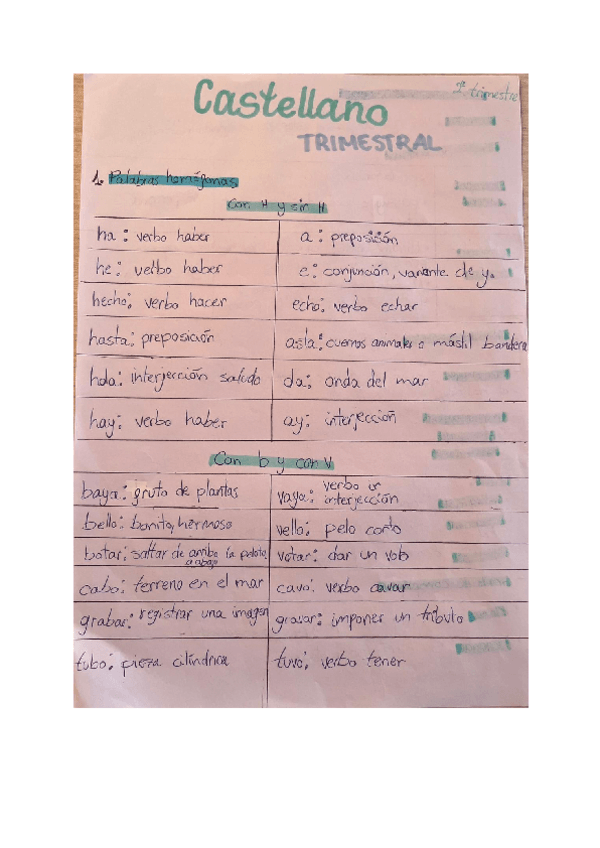 2º trimestre
Castellano
TRIMESTRAL
1. Palabras homófonas
Con H y sin H
ha: verbo haber
a: preposición
he: verbo haber
e: conjunción, variante de y.
hecho: verbo hacer
echo: verbo echar
hasta: preposición
asta: cuernos animales o mástil bandera
hola: interjección saludo
ola: onda del mar
hay: verbo haber
ay: interjección
Con b y con V
baya: fruto de plantas
vaya: verbo ir
interjección
bello: bonito, hermoso
vello: pelo corto
botar: saltar de arriba la pelota
a abajo
votar: dar un voto
cabo: terreno en el mar
cavo: verbo cavar
grabar: registrar una imagen
gravar: imponer un tributo
tubo: pieza cilíndrica
tuvo: verbo tener